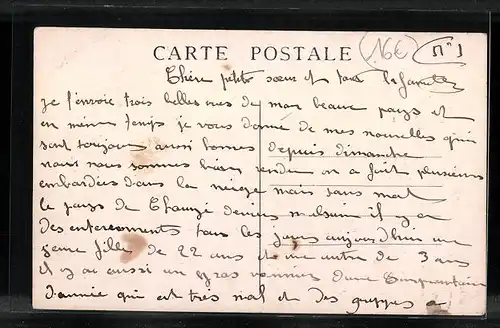 CARTE POSTALE
16€
N°1
Chère petite sœur et toute la famille
je t'envoie trois belles vues de mon beau pays et
en même temps je vous donne de mes nouvelles qui
sont toujours aussi bonnes depuis dimanche
nous nous sommes bien rendu on a fait plusieurs
embardées dans la neige mais sans mal
le pays de devien malsain il y a
des enterrements tous les jours aujourd'hui une
jeune fille de 22 ans et une autre de 3 ans
il y a aussi un gros d'une cinquantaine
d'année qui est très mal et des grippes a